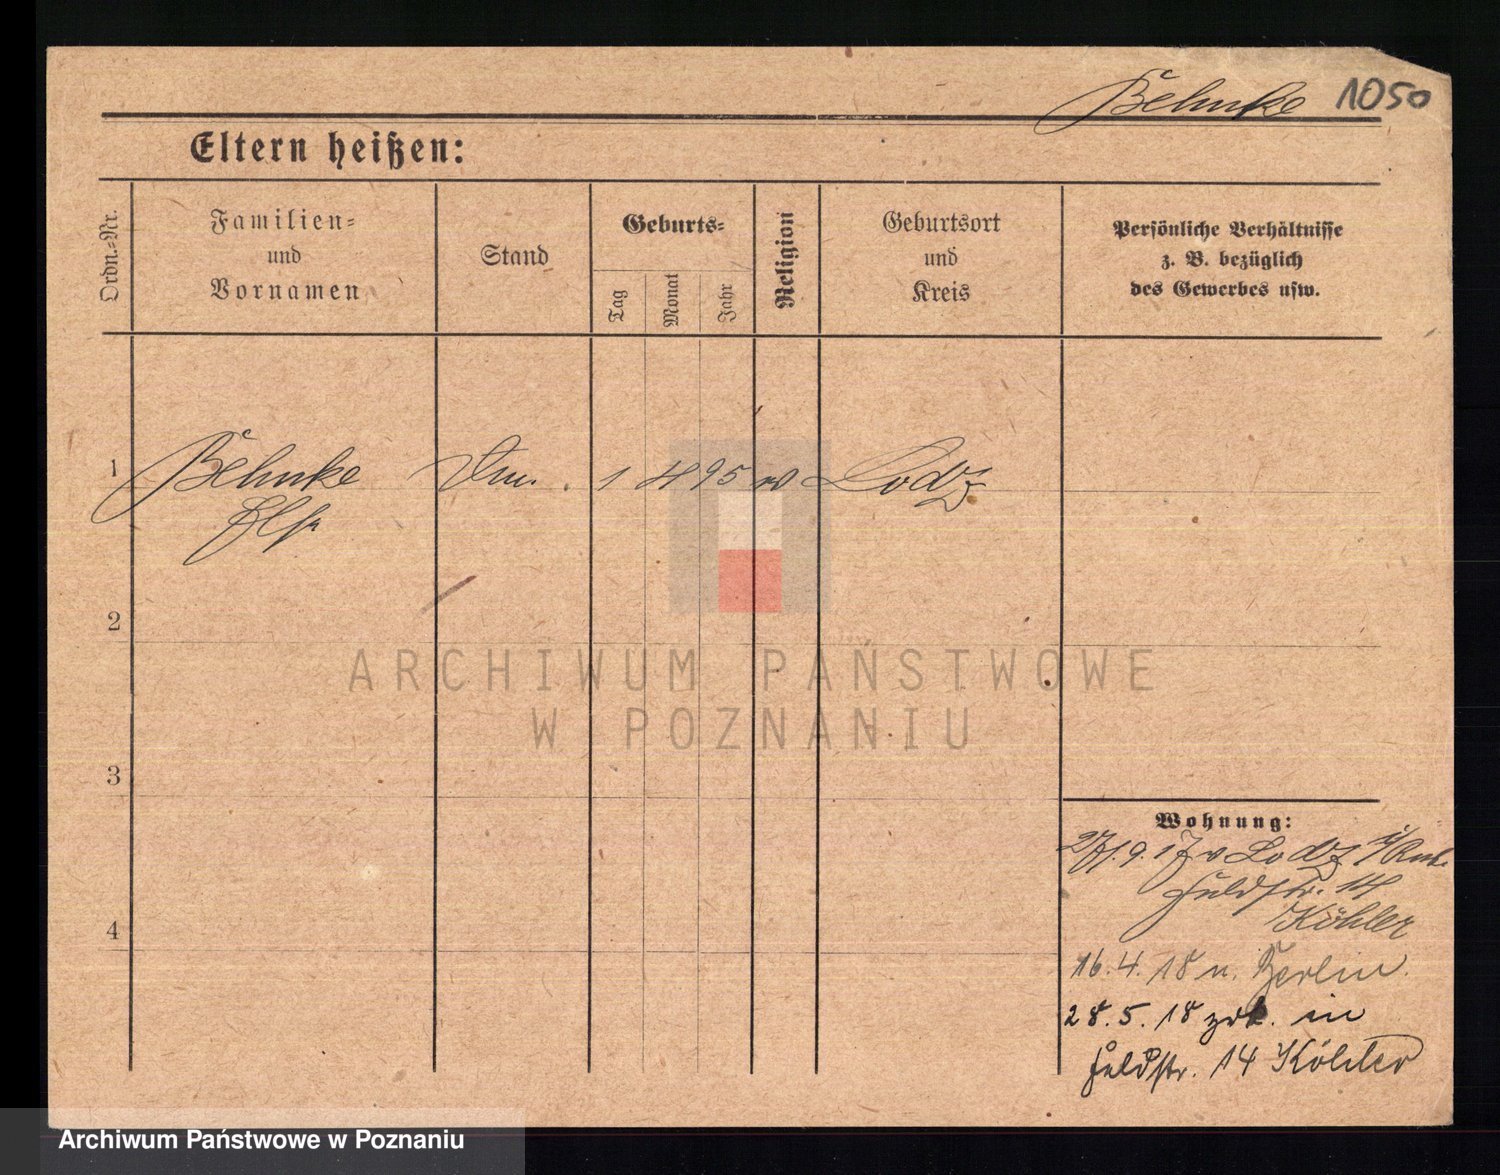 Behnke 1050
Eltern heißen:
Ordn.=Nr.
Familien=
und
Vornamen
Stand
Geburts=
Tag
Monat
Jahr
Religion
Geburtsort
und
Kreis
Persönliche Verhältnisse
z. B. bezüglich
des Gewerbes usw.
1 Behnke 1 4 95 Lodz
2
3
4
Wohnung:
27.9.17 v Lodz
Feldstr. 14
Köhler
16.4.18 n. Berlin.
28.5.18 zrk. in
Feldstr. 14 Köhler
ARCHIWUM PAŃSTWOWE
W POZNANIU
Archiwum Państwowe w Poznaniu